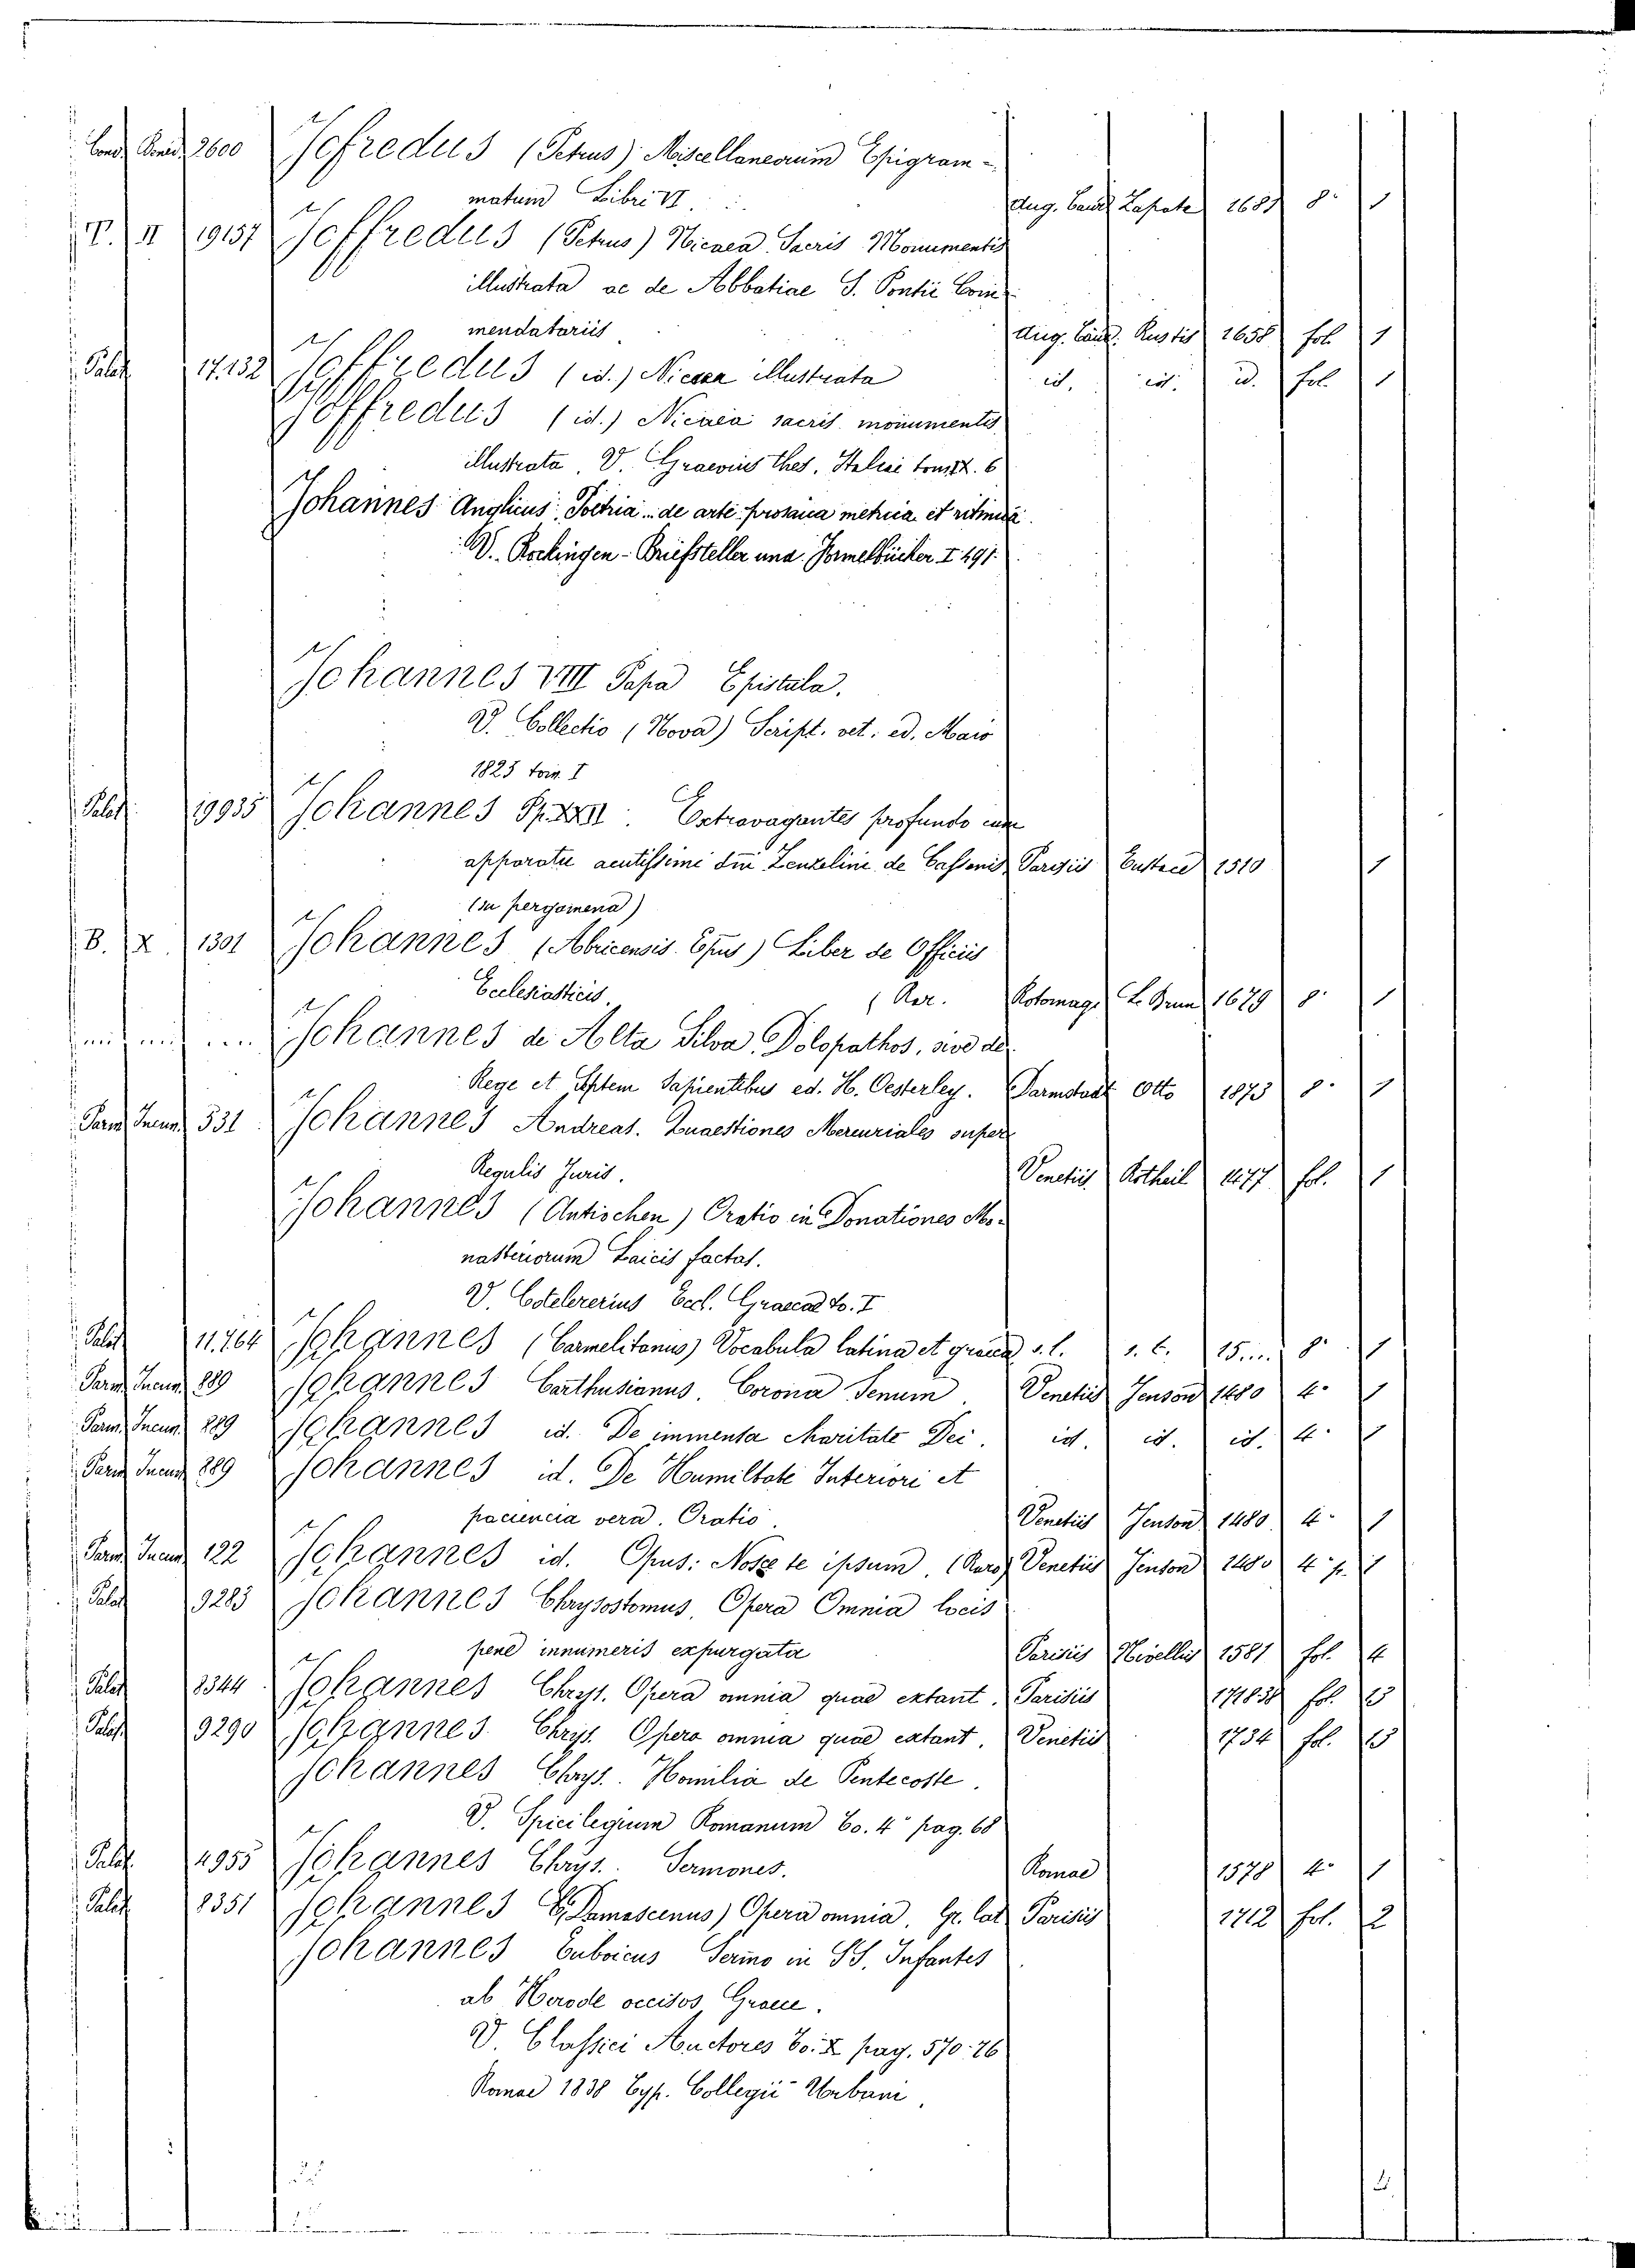 Cond. Bened. 2600 Jofredus (Petrus) Miscellaneorum Epigram-
matum Libri VI. Aug. Taur. Zapate 1681 8° 1
T. II 19157 Joffredus (Petrus) Nicaea Sacris Monumentis
illustrata ac de Abbatiae S. Pontii Com-
mendatariis Aug. Taur. Rustis 1658 fol. 1
Palat. 17.132 Joffredus (id.) Nicaea illustrata id. id. id. fol. 1
Joffredus (id.) Nicaea sacris monumentis
illustrata. V. Graevius Thes. Italiae tom. IX. 6
Johannes Anglicus, Poetria.. de arte prosaica metrica et ritmica.
V. Rockingen - Briefsteller und Formelbücher I 491.
Johannes VIII Papa Epistula.
V. Collectio (Nova) Script. vet. ed. Maio
1825 tom. I
Palat. 19935 Johannes Pp. XXII. Extravagantes profundo cum
apparatu acutissimi dni Zenzelini de Cassanis Parisiis Eustace 1510 1
(in pergamena)
B. X. 1301 Johannes (Abricensis Epus) Liber de Officiis
Ecclesiasticis. (Rar. Rotomag. L. Brun 1679 8° 1
Johannes de Alta Silva, Dolopathos, sive de
Rege et Septem Sapientibus ed. H. Oesterley. Darmstadt Otto 1873 8° 1
Parm. Incun. 531 Johannes Andreas. Quaestiones Mercuriales super
Regulis Juris. Venetiis Rotheil 1477 fol. 1
Johannes (Antiochen) Oratio in Donationes Mo-
nasteriorum Laicis factas.
V. Cotelererius Eccl. Graecae to. I
Palat. 11.764 Johannes (Carmelitanus) Vocabula latina et graeca s. l. s. t. 15... 8° 1
Parm. Incun. 289 Johannes Carthusianus. Corona Senum Venetiis Jenson 1480 4° 1
Parm. Incun. 289 Johannes id. De immensa Charitate Dei. id. id. id. 4° 1
Parm. Incun. 289 Johannes id. De Humilitate Interiori et
paciencia vera. Oratio. Venetiis Jenson 1480 4° 1
Parm. Incun. 122 Johannes id. Opus: Nosce te ipsum. (Raro) Venetiis Jenson 1480 4° p. 1
Palat. 9283 Johannes Chrysostomus, Opera Omnia locis
pene innumeris expurgata Parisiis Nivellis 1581 fol. 4
Palat. 8344 Johannes Chryst. Opera omnia quae extant. Parisiis 171838 fol. 13
Palat. 9290 Johannes Chrys. Opera omnia quae extant. Venetiis 1734 fol. 13
Johannes Chrys. Homilia de Pentecoste.
V. Spicilegium Romanum to. 4° pag. 68
Palat. 4955 Johannes Chrys. Sermones. Romae 1578 4° 1
Palat. 8351 Johannes (Damascenus) Opera omnia. Gr. lat. Parisiis 1712 fol. 2
Johannes Euboicus Sermo in SS. Infantes
ab Herode occisos, Graece.
V. Classici Auctores to. X pag. 570-76
Romae 1838 Typ. Collegii Urbani.